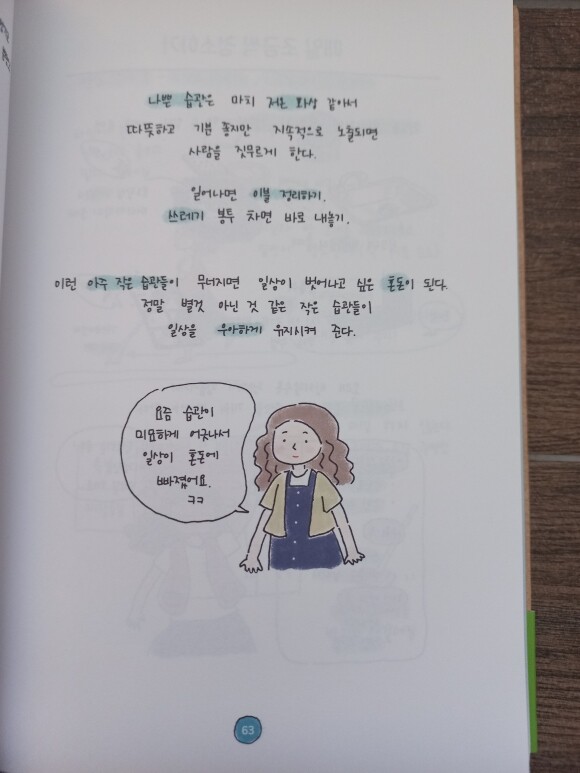 나쁜 습관은 마치 저온 화상 같아서
따뜻하고 기분 좋지만 지속적으로 노출되면
사람을 짓무르게 한다.
일어나면 이불 정리하기.
쓰레기 봉투 차면 바로 내놓기.
이런 아주 작은 습관들이 무너지면 일상이 벗어나고 싶은 혼돈이 된다.
정말 별것 아닌 것 같은 작은 습관들이
일상을 우아하게 유지시켜 준다.
요즘 습관이
미묘하게 어긋나서
일상이 혼돈에
빠졌어요.
ㅋㅋ
63